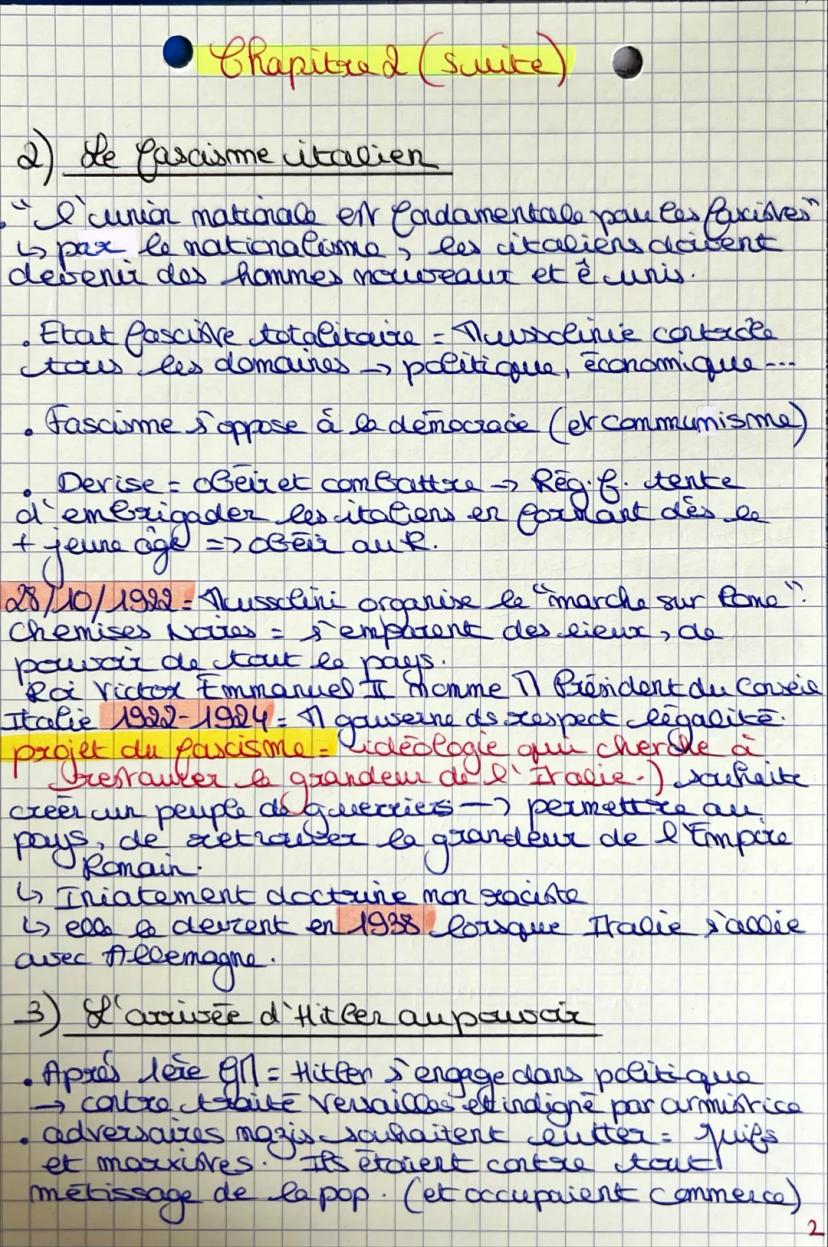 Chapitre 2 (suite)
2) Le fascisme italien
"l'union nationale est fondamentale pour les fascistes"
↳ par le nationalisme, les italiens doivent
devenir des hommes nouveaux et ê unis.
. Etat fasciste totalitaire = Mussolinie contrôle
tous les domaines → politique, économique...
. Fascisme s'oppose à la démocracie (et communisme)
. Devise = obéir et combattre → Rég. f. tente
d'embrigader les italiens en formant dès le
+ jeune âge => obéir au R.
28/10/1922 = Mussolini organise le "marche sur Rome".
Chemises Noires = s'emparent des lieux, de
pouvoir de tout le pays.
Roi Victor Emmanuel II nomme M Président du Conseil
Italie 1922-1924 = M gouverne ds respect légalité.
projet du fascisme = idéologie qui cherche à
restaurer la grandeur de l'Italie.) souhaite
créer un peuple de guerriers → permettre au
pays, de retrouver la grandeur de l'Empire
Romain.
↳ Iniatement doctrine non raciste
↳ elle le devient en 1938 lorsque Italie s'allie
avec Allemagne.
3) L'arrivée d'Hitler au pouvoir
. Après 1ère GM = Hitler s'engage dans politique
→ contre traité Versailles et indigné par armistice
. adversaires nazis souhaitent lutter = juifs
et marxistes. Ils étaient contre tout
métissage de la pop. (et occupaient commerce)
2